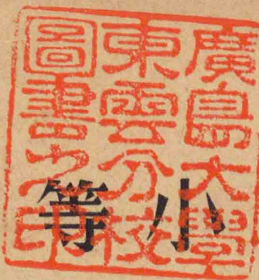 廣島大學
東雲分校
圖書之印
小等